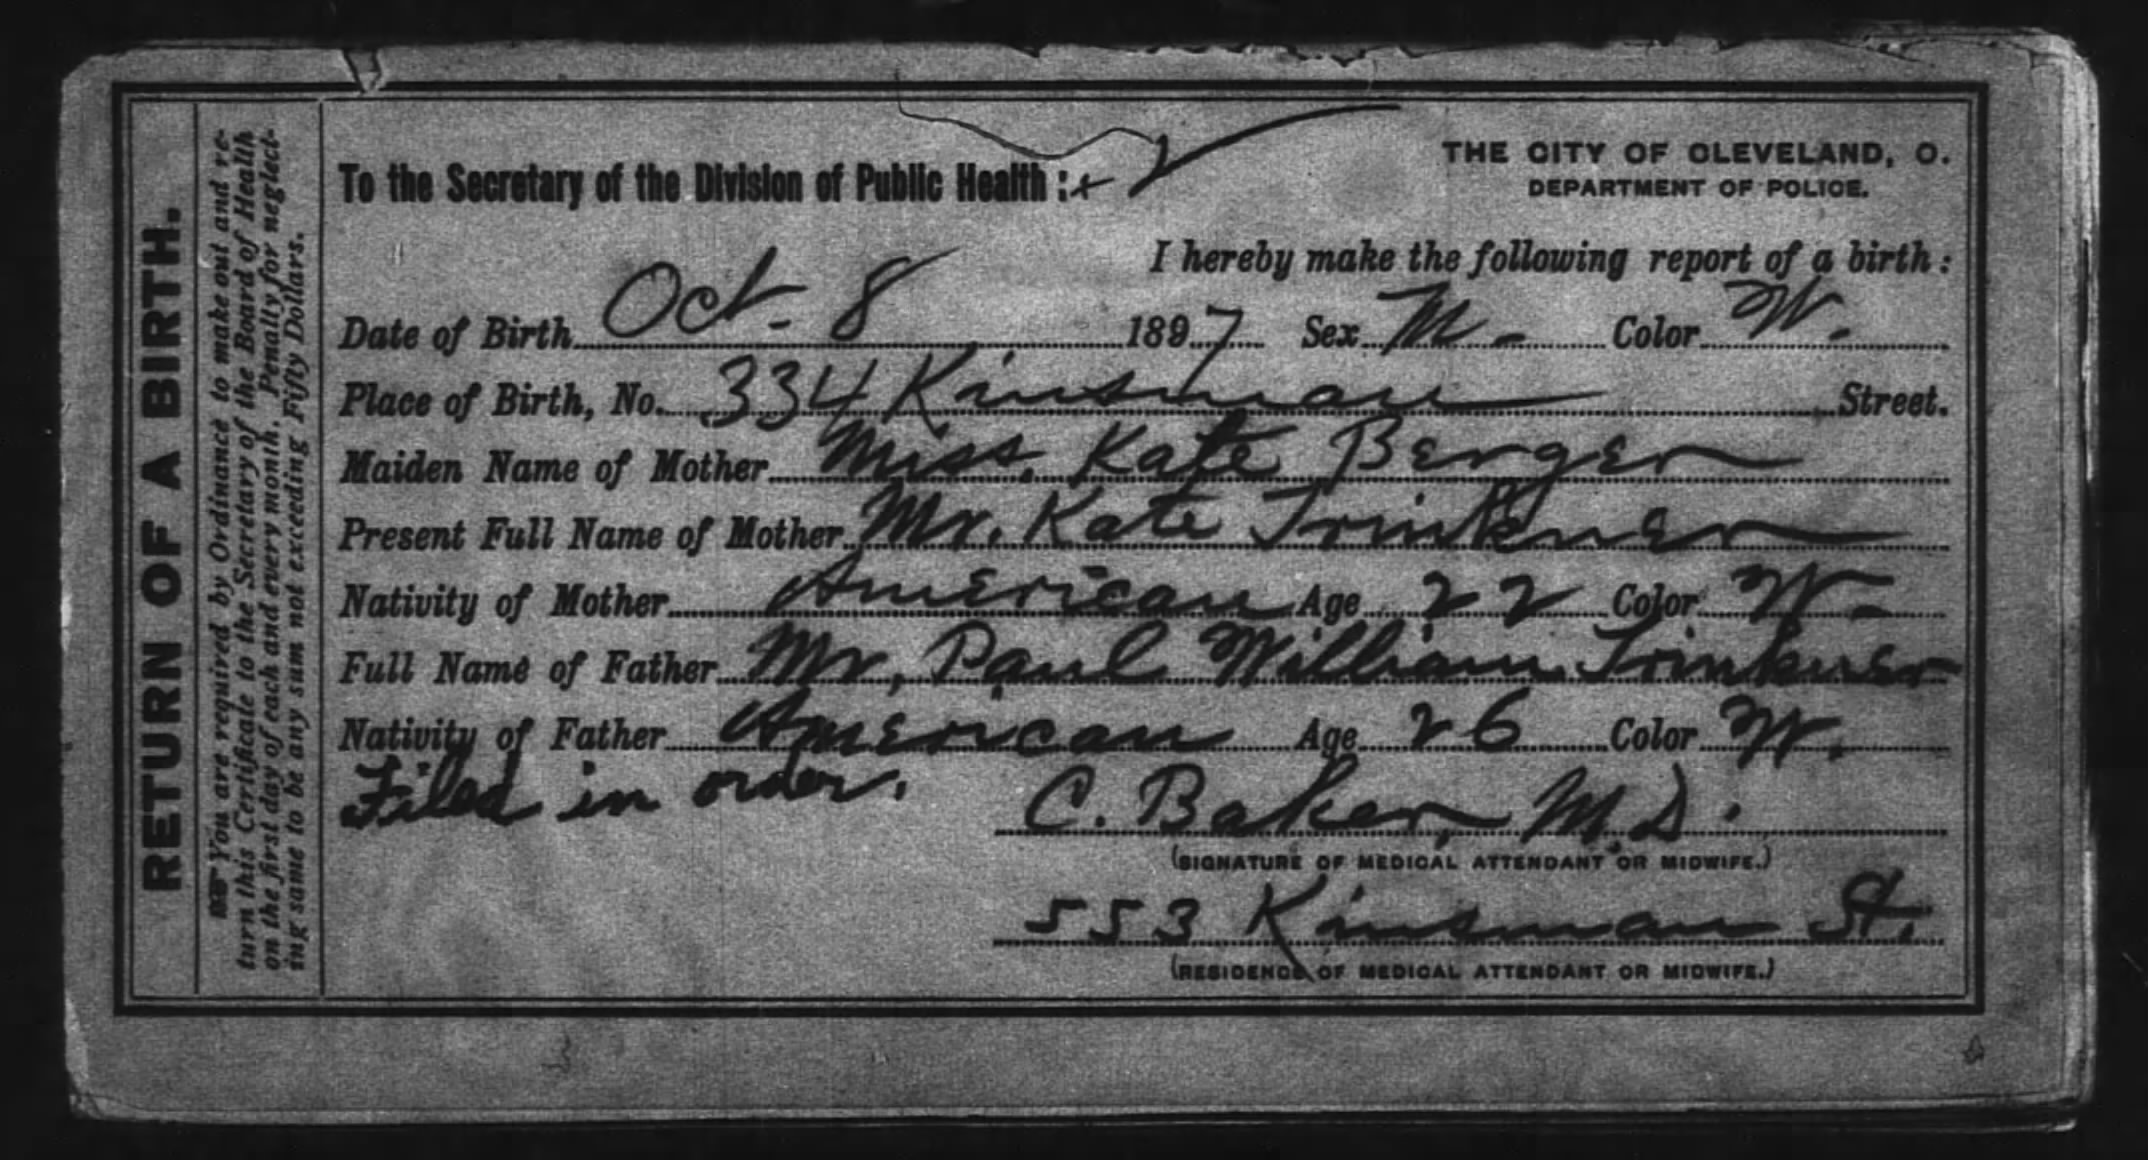 RETURN OF A BIRTH.
☞ You are required by Ordinance to make out and re-
turn this Certificate to the Secretary of the Board of Health
on the first day of each and every month. Penalty for neglect-
ing same to be any sum not exceeding Fifty Dollars.
To the Secretary of the Division of Public Health :
THE CITY OF CLEVELAND, O.
DEPARTMENT OF POLICE.
I hereby make the following report of a birth :
Date of Birth Oct- 8 1897 Sex M. - Color W.
Place of Birth, No. 334 Kinsman Street.
Maiden Name of Mother Miss. Kate Berger
Present Full Name of Mother Mr. Kate Trinkner
Nativity of Mother American Age 22 Color W-
Full Name of Father Mr, Paul William Trinkner
Nativity of Father American Age 26 Color W.
Filed in order.
C. Baker, M.D.
(SIGNATURE OF MEDICAL ATTENDANT OR MIDWIFE.)
553 Kinsman St.
(RESIDENCE OF MEDICAL ATTENDANT OR MIDWIFE.)